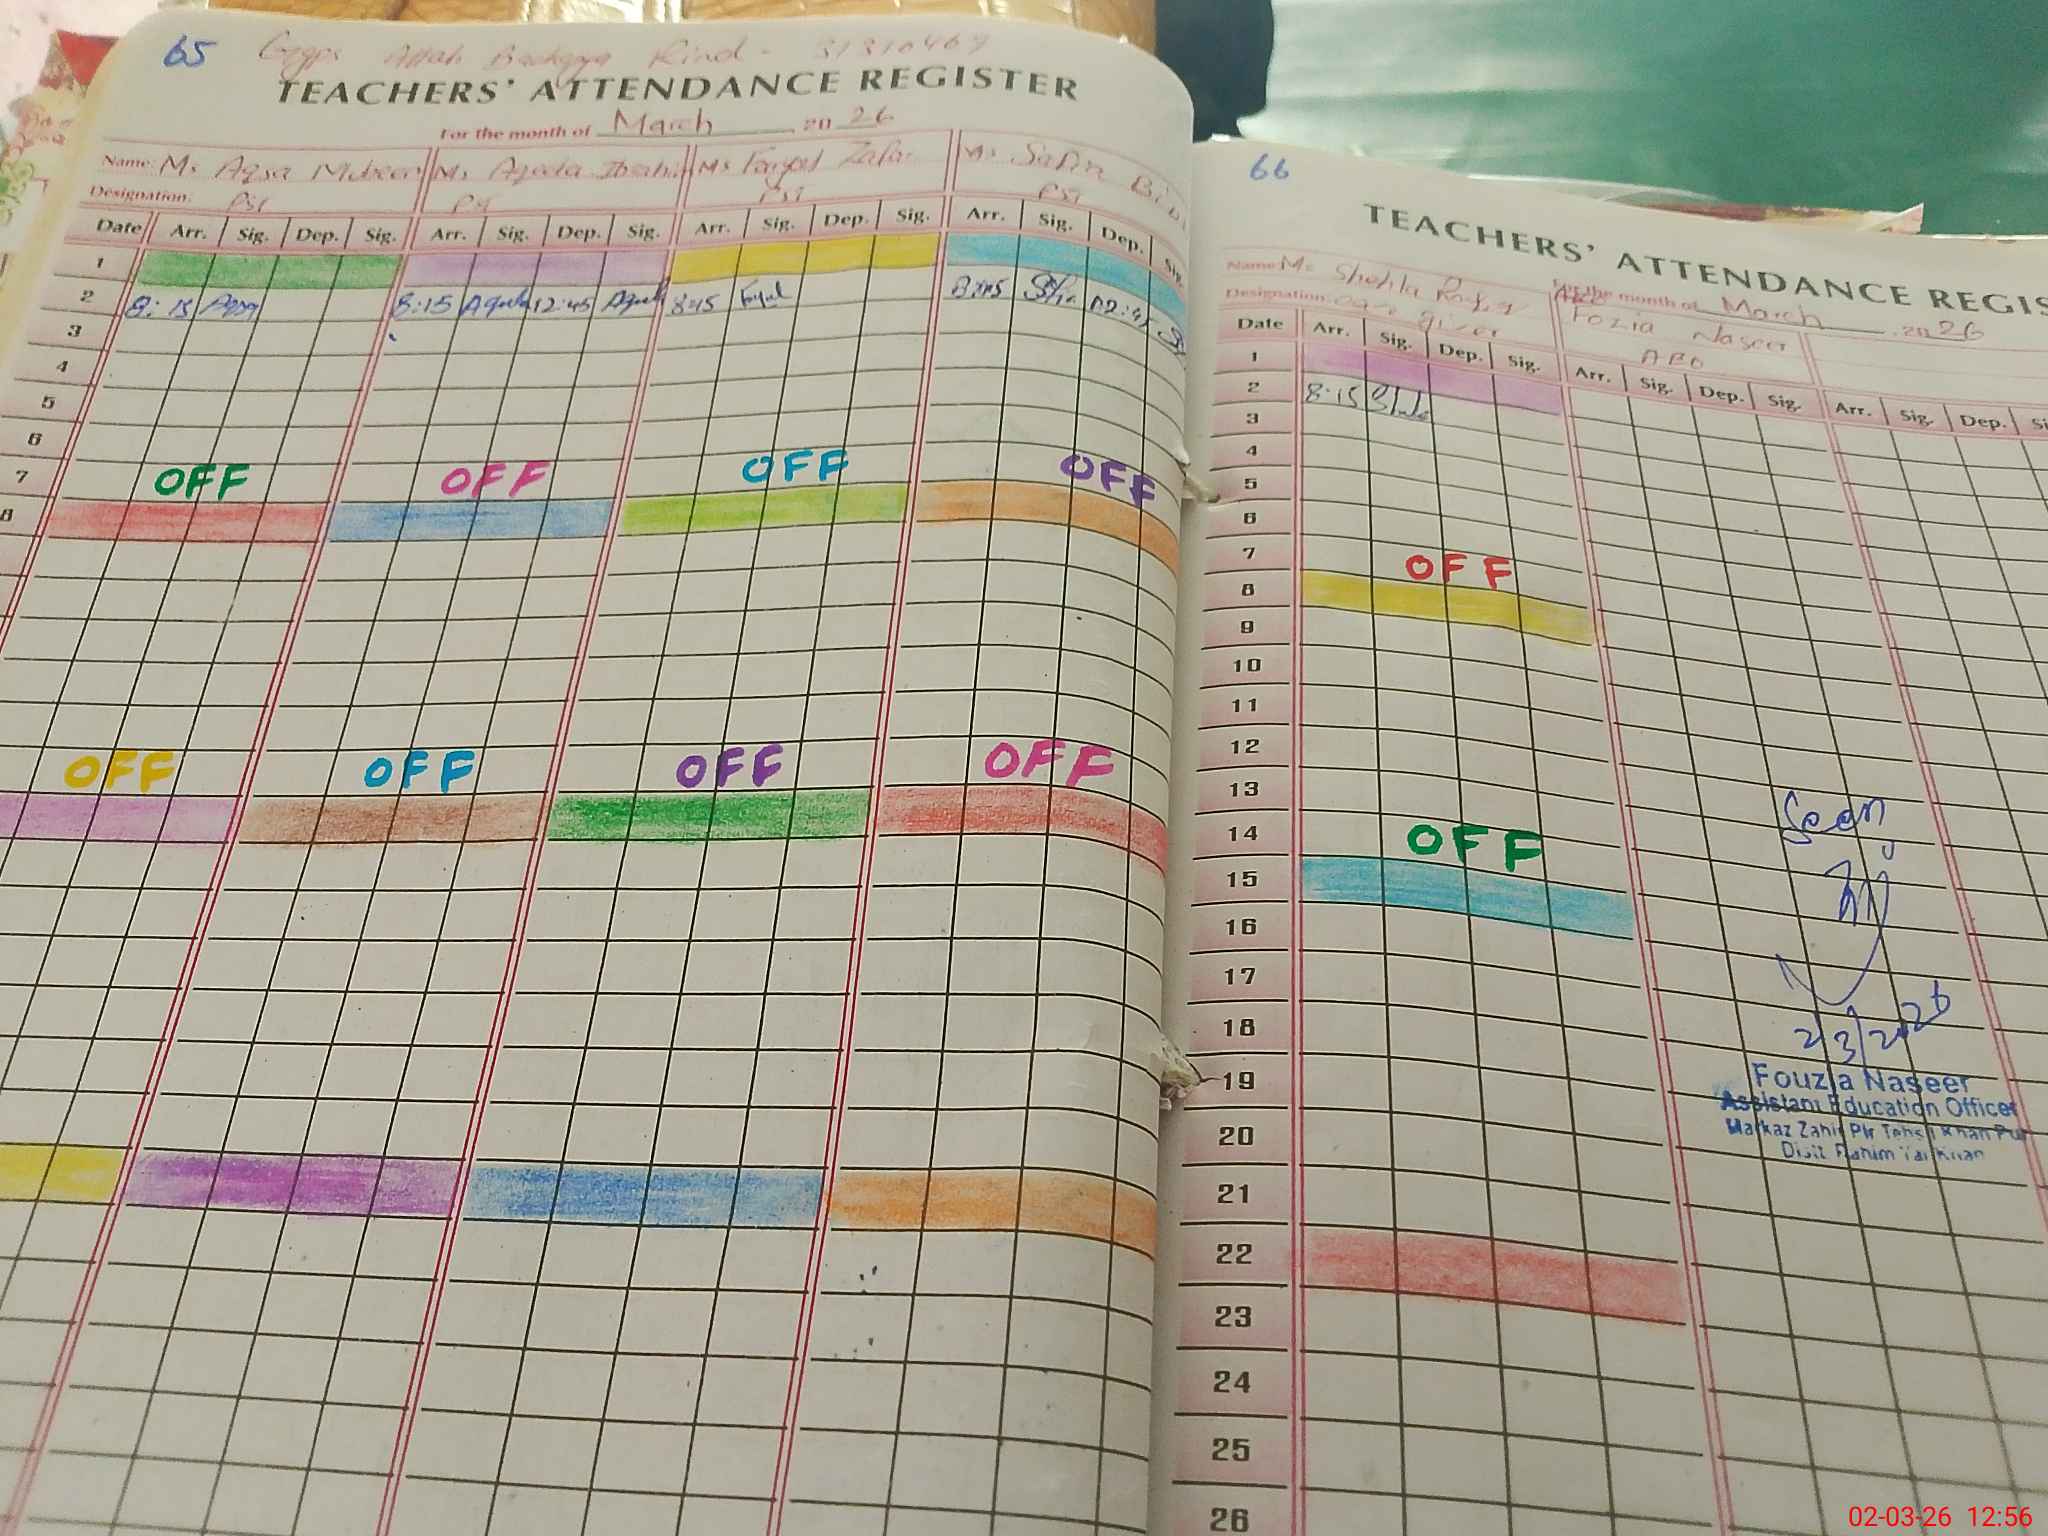 65
Ggps Attah Bakhsh Rind - 31310469
TEACHERS' ATTENDANCE REGISTER
For the month of March 2026
Name: Ms Aqsa Mubeen Ms Aqeela Ms Faryal Zafar Ms Safia Bibi
Designation: PST PST PST PST
Date Arr. Sig. Dep. Sig. Arr. Sig. Dep. Sig. Arr. Sig. Dep. Sig. Arr. Sig. Dep. Sig.
1
2 8:15 Aqsa 8:15 Aqeela 12:45 Aqeela 8:15 Faryal 8:15 12:45
3
4
5
6
7 OFF OFF OFF OFF
8
OFF OFF OFF OFF
66
TEACHERS' ATTENDANCE REGIS
For the month of March 2026
Name: Ms Shehla Fozia Naseer
Designation: care giver AEO
Date Arr. Sig. Dep. Sig. Arr. Sig. Dep. Sig. Arr. Sig. Dep. Si
1
2 8:15
3
4
5
6
7 OFF
8
9
10
11
12
13
14 OFF
15
16
17
18
19
20
21
22
23
24
25
26
Seen
2/3/2026
Fouzia Naseer
Assistant Education Officer
Markaz Zahir Pir Tehsil Khan Pur
Distt Rahim Yar Khan
02-03-26 12:56